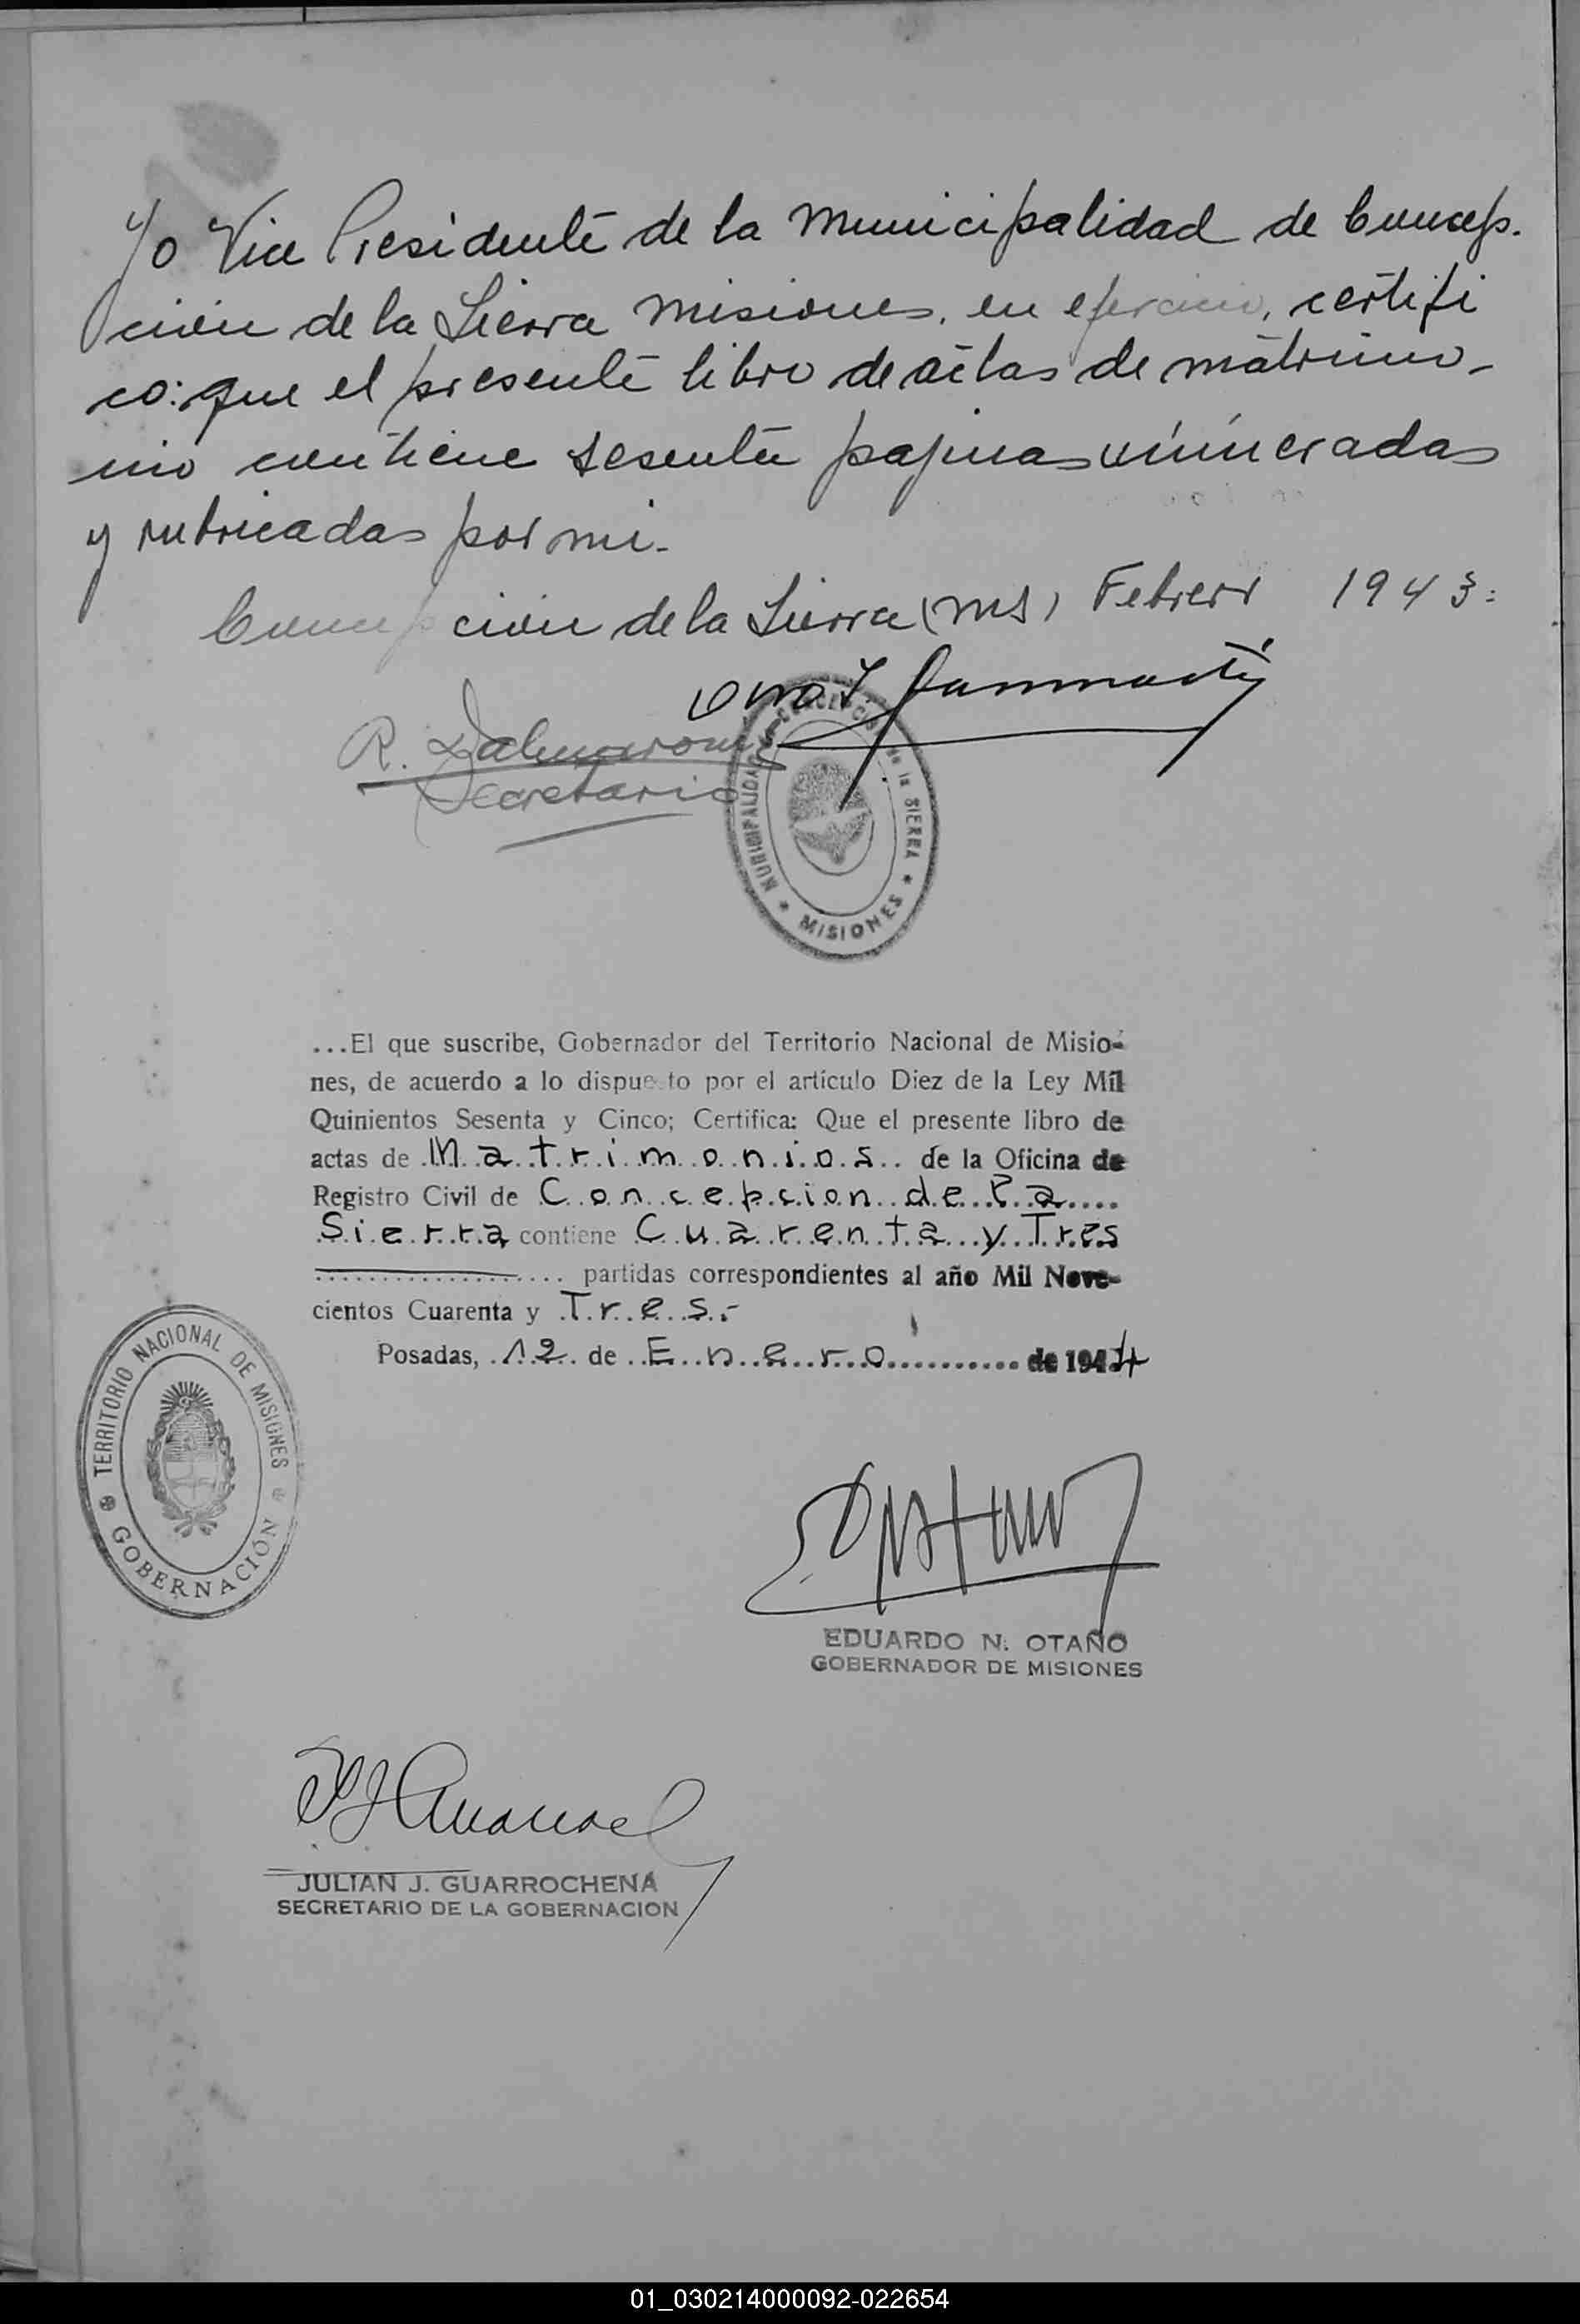 Yo Vice Presidente de la Municipalidad de Concep.
ción de la Sierra Misiones, en ejercicio, certifi
co: que el presente libro de actas de matrimo-
nio contiene sesenta pajinas númeradas
y rubricadas por mi.
Concepción de la Sierra (Ms) Febrero 1943:
R. Dalmaroni
Secretario
MUNICIPALIDAD CONCEPCION de la SIERRA * MISIONES *
...El que suscribe, Gobernador del Territorio Nacional de Misio-
nes, de acuerdo a lo dispuesto por el artículo Diez de la Ley Mil
Quinientos Sesenta y Cinco; Certifica: Que el presente libro de
actas de Matrimonios de la Oficina de
Registro Civil de Concepcion de la
Sierra contiene Cuarenta y Tres
partidas correspondientes al año Mil Nove-
cientos Cuarenta y Tres.-
Posadas, 12 de Enero de 1944
TERRITORIO NACIONAL DE MISIONES
GOBERNACIÓN
EDUARDO N. OTAÑO
GOBERNADOR DE MISIONES
JULIAN J. GUARROCHENA
SECRETARIO DE LA GOBERNACION
01_030214000092-022654